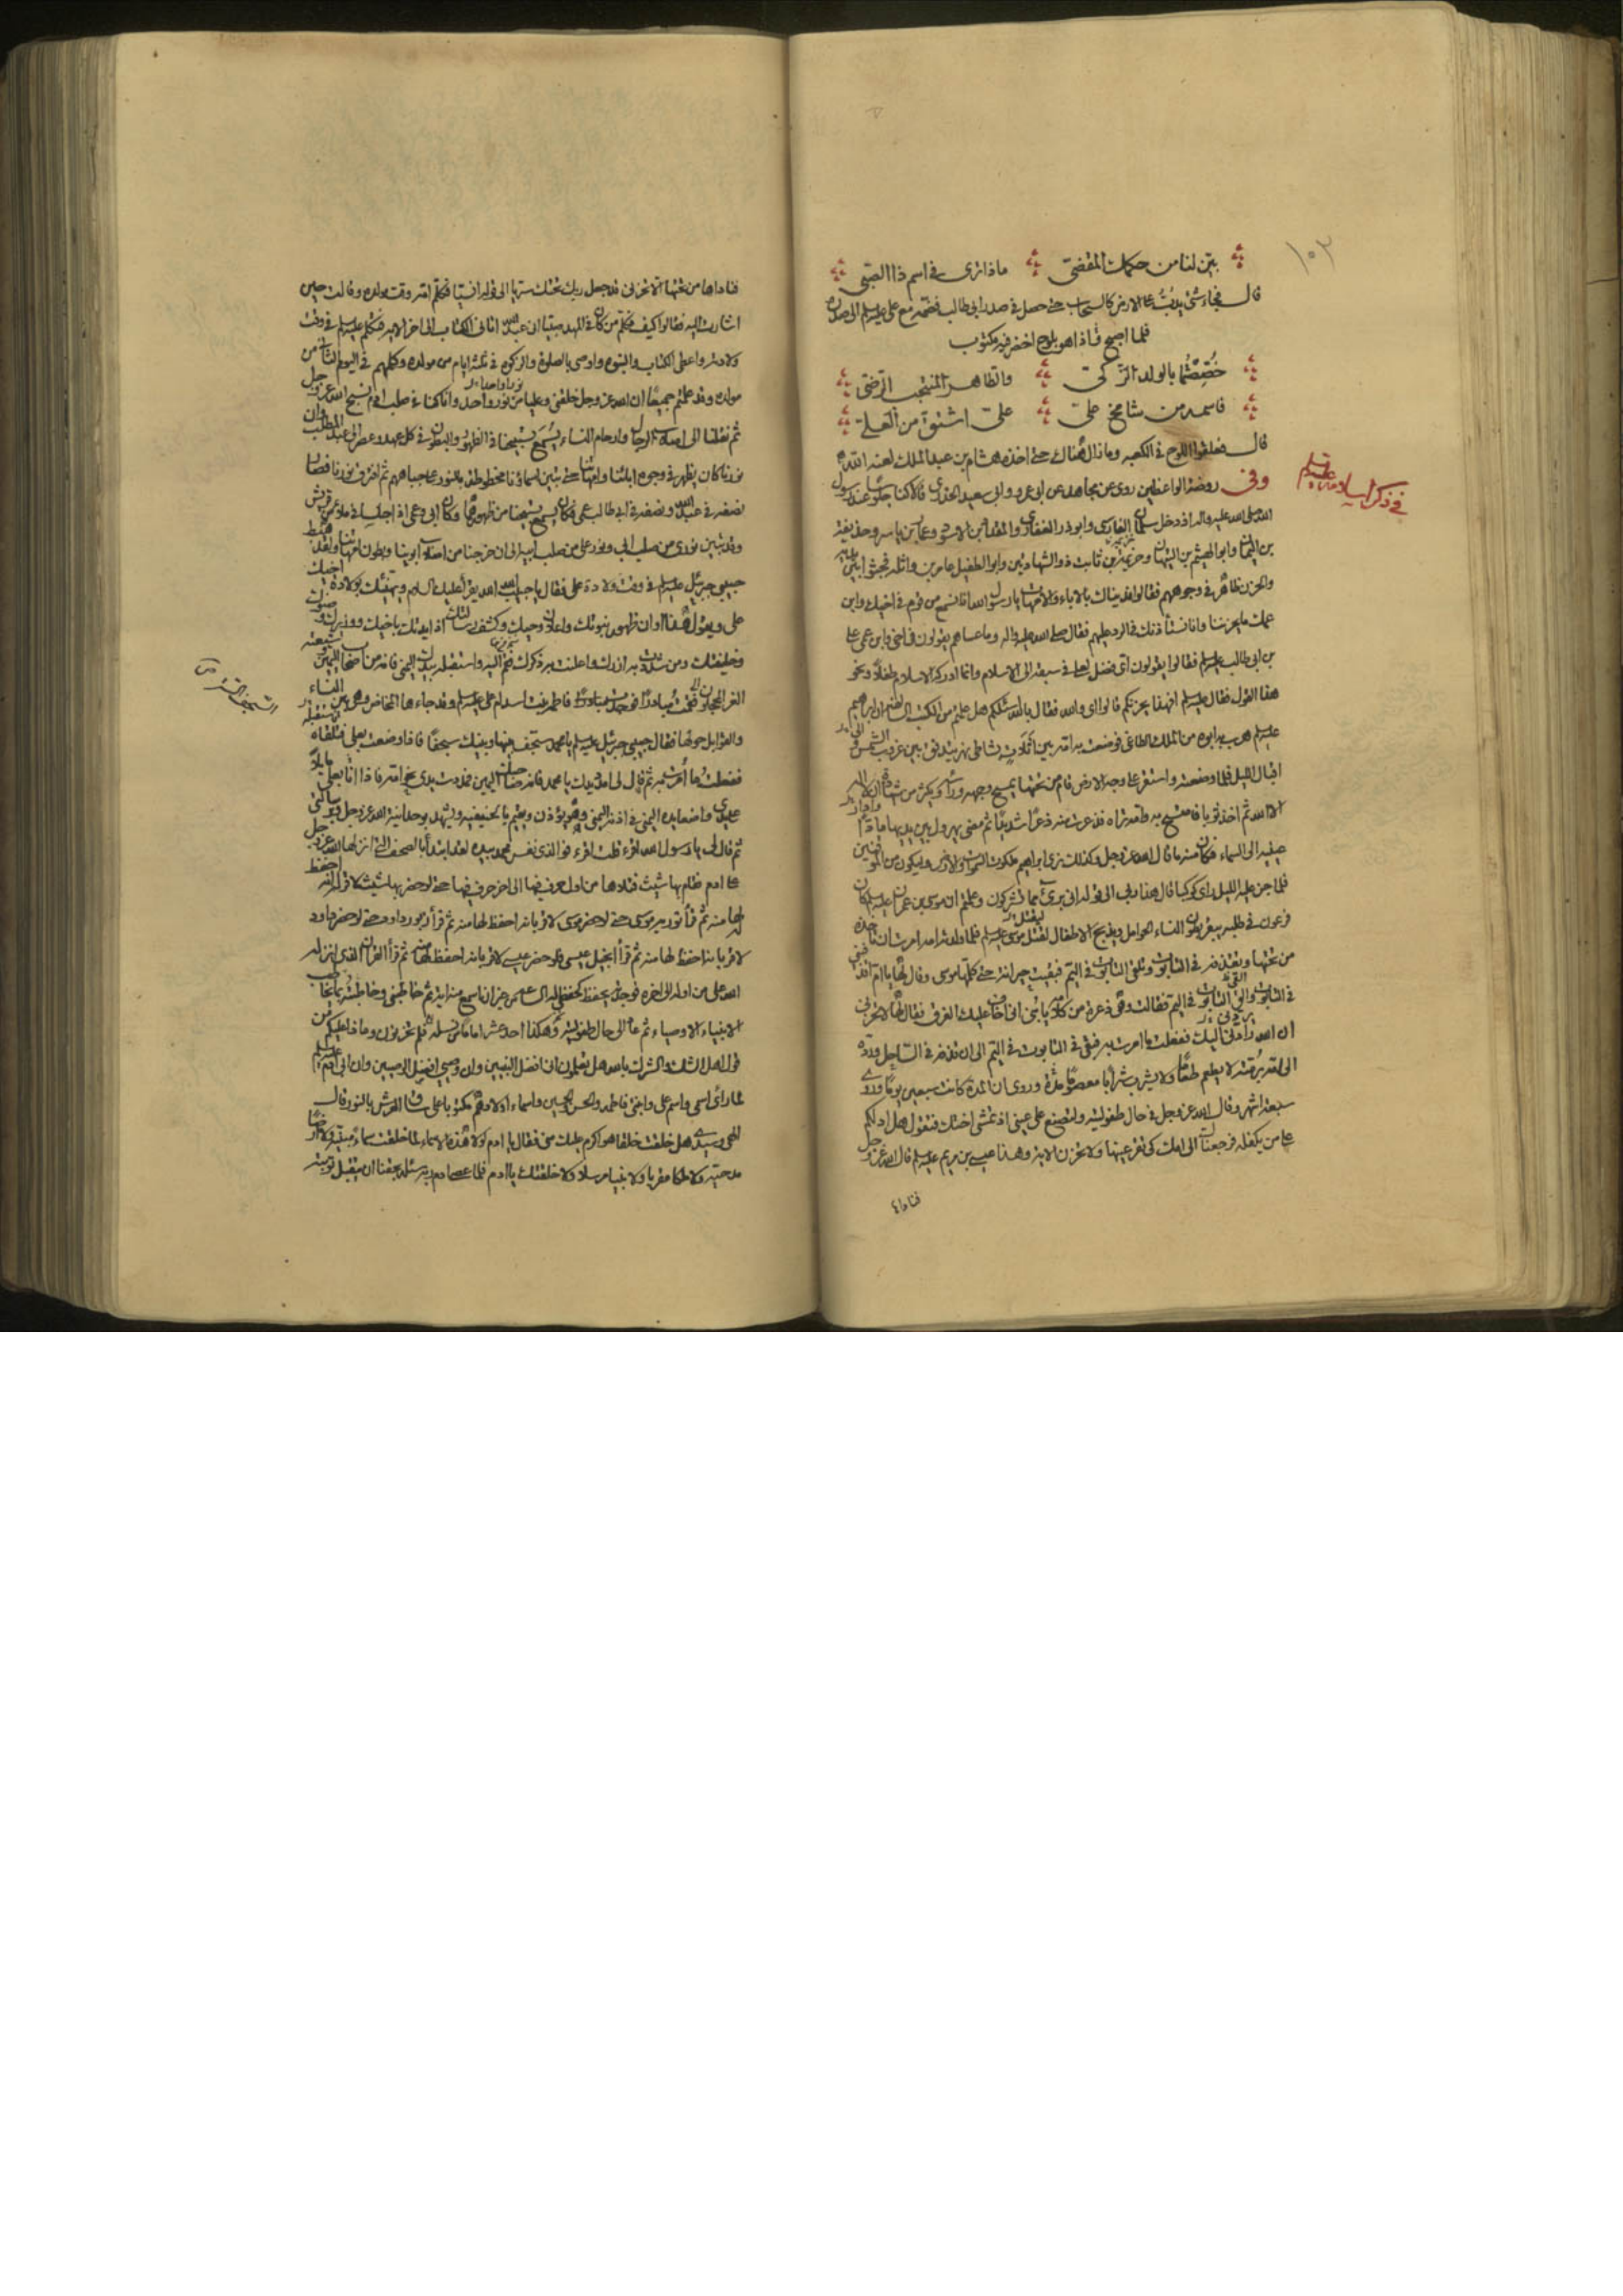 ١٠٣
بيّن لنا من حكمك المقضيّ ماذا ترى في اسم ذا الصبيّ
قال فجاء شئ يدبّ على الارض كالسحاب حتى حصل في صدر ابي طالب فضمّه مع علي عليه السلم الى صدره
فلما اصبح فاذا هو بلوح اخضر فيه مكتوب
خُصِصتُما بالولد الزكيّ والطاهر المنتجب الرضيّ
فاسمه من شامخ عليّ عليّ اشتق من العليّ
قال فعلقوا اللوح في الكعبه وما زال هناك حتى اخذه هشام بن عبد الملك لعنه الله
في ذكر اسلامه عليه السلم
وفي روضة الواعظين روى عن مجاهد عن ابي عمرو وابي سعيد الخدري قالا كنا جلوسا عند رسول
الله صلى الله عليه واله اذ دخل سلمان الفارسي وابو ذر الغفاري والمقداد بن الاسود وعمار بن ياسر وحذيفة
بن اليمان وابو الهيثم بن التيهان وخزيمة بن ثابت ذو الشهادتين وابو الطفيل عامر بن واثله فجثوا بين يديه
والحزن ظاهر في وجوههم فقالوا فديناك بالاباء والامهات يا رسول الله انا نسمع من قوم في اخيك وابن
عمك ما يحزننا وانا نستأذنك في الرد عليهم فقال صلى الله عليه واله وما عساهم يقولون في اخي وابن عمي علي
بن ابي طالب عليه السلم فقالوا يقولون اي فضل لعلي في سبقه الى الاسلام وانما ادركه الاسلام طفلا ونحو
هذا القول فقال عليه السلم افهذا يحزنكم قالوا اي والله فقال بالله اسئلكم هل علمتم من الكتب السالفه ان ابراهيم
عليه السلم هرب به ابوه من الملك الطاغي فوضعت به امه بين اثلاث بشاطئ نهر يتدفق بين غروب الشمس
اقبال الليل فلما وضعته واستقر على وجه الارض قام من تحتها يمسح وجهه وراسه ويكثر من شهادة ان لا اله
الا الله ثم اخذ ثوبا فامتسح به وامه تراه فذعرت منه ذعرا شديدا ثم مضى يهرول بين يديها مادا
عينيه الى السماء فكان منه ما قال الله عز وجل وكذلك نرى ابراهيم ملكوت السموات والارض وليكون من الموقنين
فلما جن عليه الليل راى كوكبا قال هذا ربي الى قوله اني برئ مما تشركون وعلمتم ان موسى بن عمران عليه السلم كان
فرعون في طلبه يبقر بطون النساء الحوامل ويذبح الاطفال ليقتل موسى عليه السلم فلما ولدته امه امرت ان تاخذه
من تحتها وتقذفه في التابوت وتلقي التابوت في اليم فبقيت حيرانة حتى كلمها موسى وقال لها يا ام اقذفيني
في التابوت والقي التابوت في اليم فقالت وهي ذعرة من كلامه يا بني اني اخاف عليك الغرق فقال لها لا تحزني
ان الله رادني اليك ففعلت ما امرت به فبقي في التابوت في اليم الى ان قذفه في الساحل وردّه
الى امه برمته لا يطعم طعاما ولا يشرب شرابا معصوما مدة وروي ان المدة كانت سبعين يوما وروي
سبعة اشهر وقال الله عز وجل في حال طفوليته ولتصنع على عيني اذ تمشي اختك فتقول هل ادلكم
على من يكفله فرجعناك الى امك كي تقر عينها ولا تحزن الايه وهذا عيسى بن مريم عليه السلم قال الله عز وجل
فناداها
فناداها من تحتها الا تحزني قد جعل ربك تحتك سريا الى قوله انسيا فكلم امه وقت مولده وقالت حين
اشارت اليه فقالوا كيف نكلم من كان في المهد صبيا اني عبد الله اتاني الكتاب الى اخر الايه فتكلم عليه السلم في وقت
ولادته واعطي الكتاب والنبوه واوصي بالصلوة والزكوة في ثلثة ايام من مولده وكلمهم في اليوم الثاني من
مولده وقد علمتم جميعا ان الله عز وجل خلقني وعليا من نور واحد وانا كنا في صلب ادم نسبح الله عز وجل
ثم نقلنا الى اصلاب الرجال وارحام النساء يسمع تسبيحنا في الظهور والبطون في كل عهد وعصر الى عبد المطلب وان
نورنا كان يظهر في وجوه ابائنا وامهاتنا حتى تبين اسماؤنا مخطوطة بالنور على جباههم ثم افترق نورنا فصار
نصفه في عبد الله ونصفه في ابي طالب عمي فكان يسمع تسبيحنا من ظهورهما وكان ابي وعمي اذا جلسا في ملاء من قريش
وقد تبين نوري من صلب ابي ونور علي من صلب ابيه الى ان خرجنا من اصلاب ابوينا وبطون امهاتنا ولقد هبط
حبيبي جبرئيل عليه السلم في وقت ولادة علي فقال يا حبيب الله الله يقرأ عليك السلام ويهنئك بولادة اخيك
علي ويقول هذا اوان ظهور نبوتك واعلان وحيك وكشف رسالتك اذ ايدتك باخيك ووزيرك وصنوك
وخليفتك ومن شددت به ازرك واعلنت به ذكرك فقم اليه واستقبله بيدك اليمنى فانه من اصحاب اليمين وشيعته
الغر المحجلون فقمت مبادرا فوجدت فاطمة بنت اسد ام علي عليه السلم وقد جاءها المخاض وهي بين النساء
والقوابل حولها فقال حبيبي جبرئيل عليه السلم يا محمد سجف بينها وبينك سجفا فاذا وضعت بعلي فتلقاه
ففعلت ما أُمرت به ثم قال لي امدد يدك يا محمد فانه صاحبك اليمين فمددت يدي نحو امه فاذا انا بعلي مائلا
على يدي واضعا يده اليمنى في اذنه اليمنى وهو يؤذن ويقيم بالحنيفية ويشهد بوحدانية الله عز وجل وبرسالتي
ثم قال لي يا رسول الله اقرء قلت اقرء فوالذي نفس محمد بيده لقد ابتدأ بالصحف التي انزلها الله عز وجل
على ادم فقام بها شيث فتلاها من اول حرف فيها الى اخر حرف فيها حتى لو حضر بها شيث لاقر له انه احفظ
لها منه ثم قرأ تورية موسى حتى لو حضر موسى لاقر بانه احفظ لها منه ثم قرأ زبور داود حتى لو حضر داود
لاقر بانه احفظ لها منه ثم قرأ انجيل عيسى حتى لو حضر عيسى لاقر بانه احفظ لها منه ثم قرأ القران الذي انزله
الله علي من اوله الى اخره فوجدته يحفظ كحفظي له الساعه من غير ان اسمع منه اية ثم خاطبني وخاطبته بما يخاطب
الانبياء الاوصياء ثم عاد الى حال طفوليته وهكذا احد عشر اماما من نسله فلم تحزنون وماذا عليكم من
قول اهل الشك والشرك بالله هل تعلمون اني افضل النبيين وان وصيي افضل الوصيين وان ابي ادم عليه السلم
لما راى اسمي واسم علي وابنتي فاطمه والحسن والحسين واسماء اولادهم مكتوبا على ساق العرش بالنور قال
الهي وسيدي هل خلقت خلقا هو اكرم عليك مني فقال يا ادم لولا هذه الاسماء لما خلقت سماء مبنية ولا ارضا
مدحية ولا ملكا مقربا ولا نبيا مرسلا ولا خلقتك يا ادم فلما عصى ادم ربه سئله بحقنا ان يقبل توبته